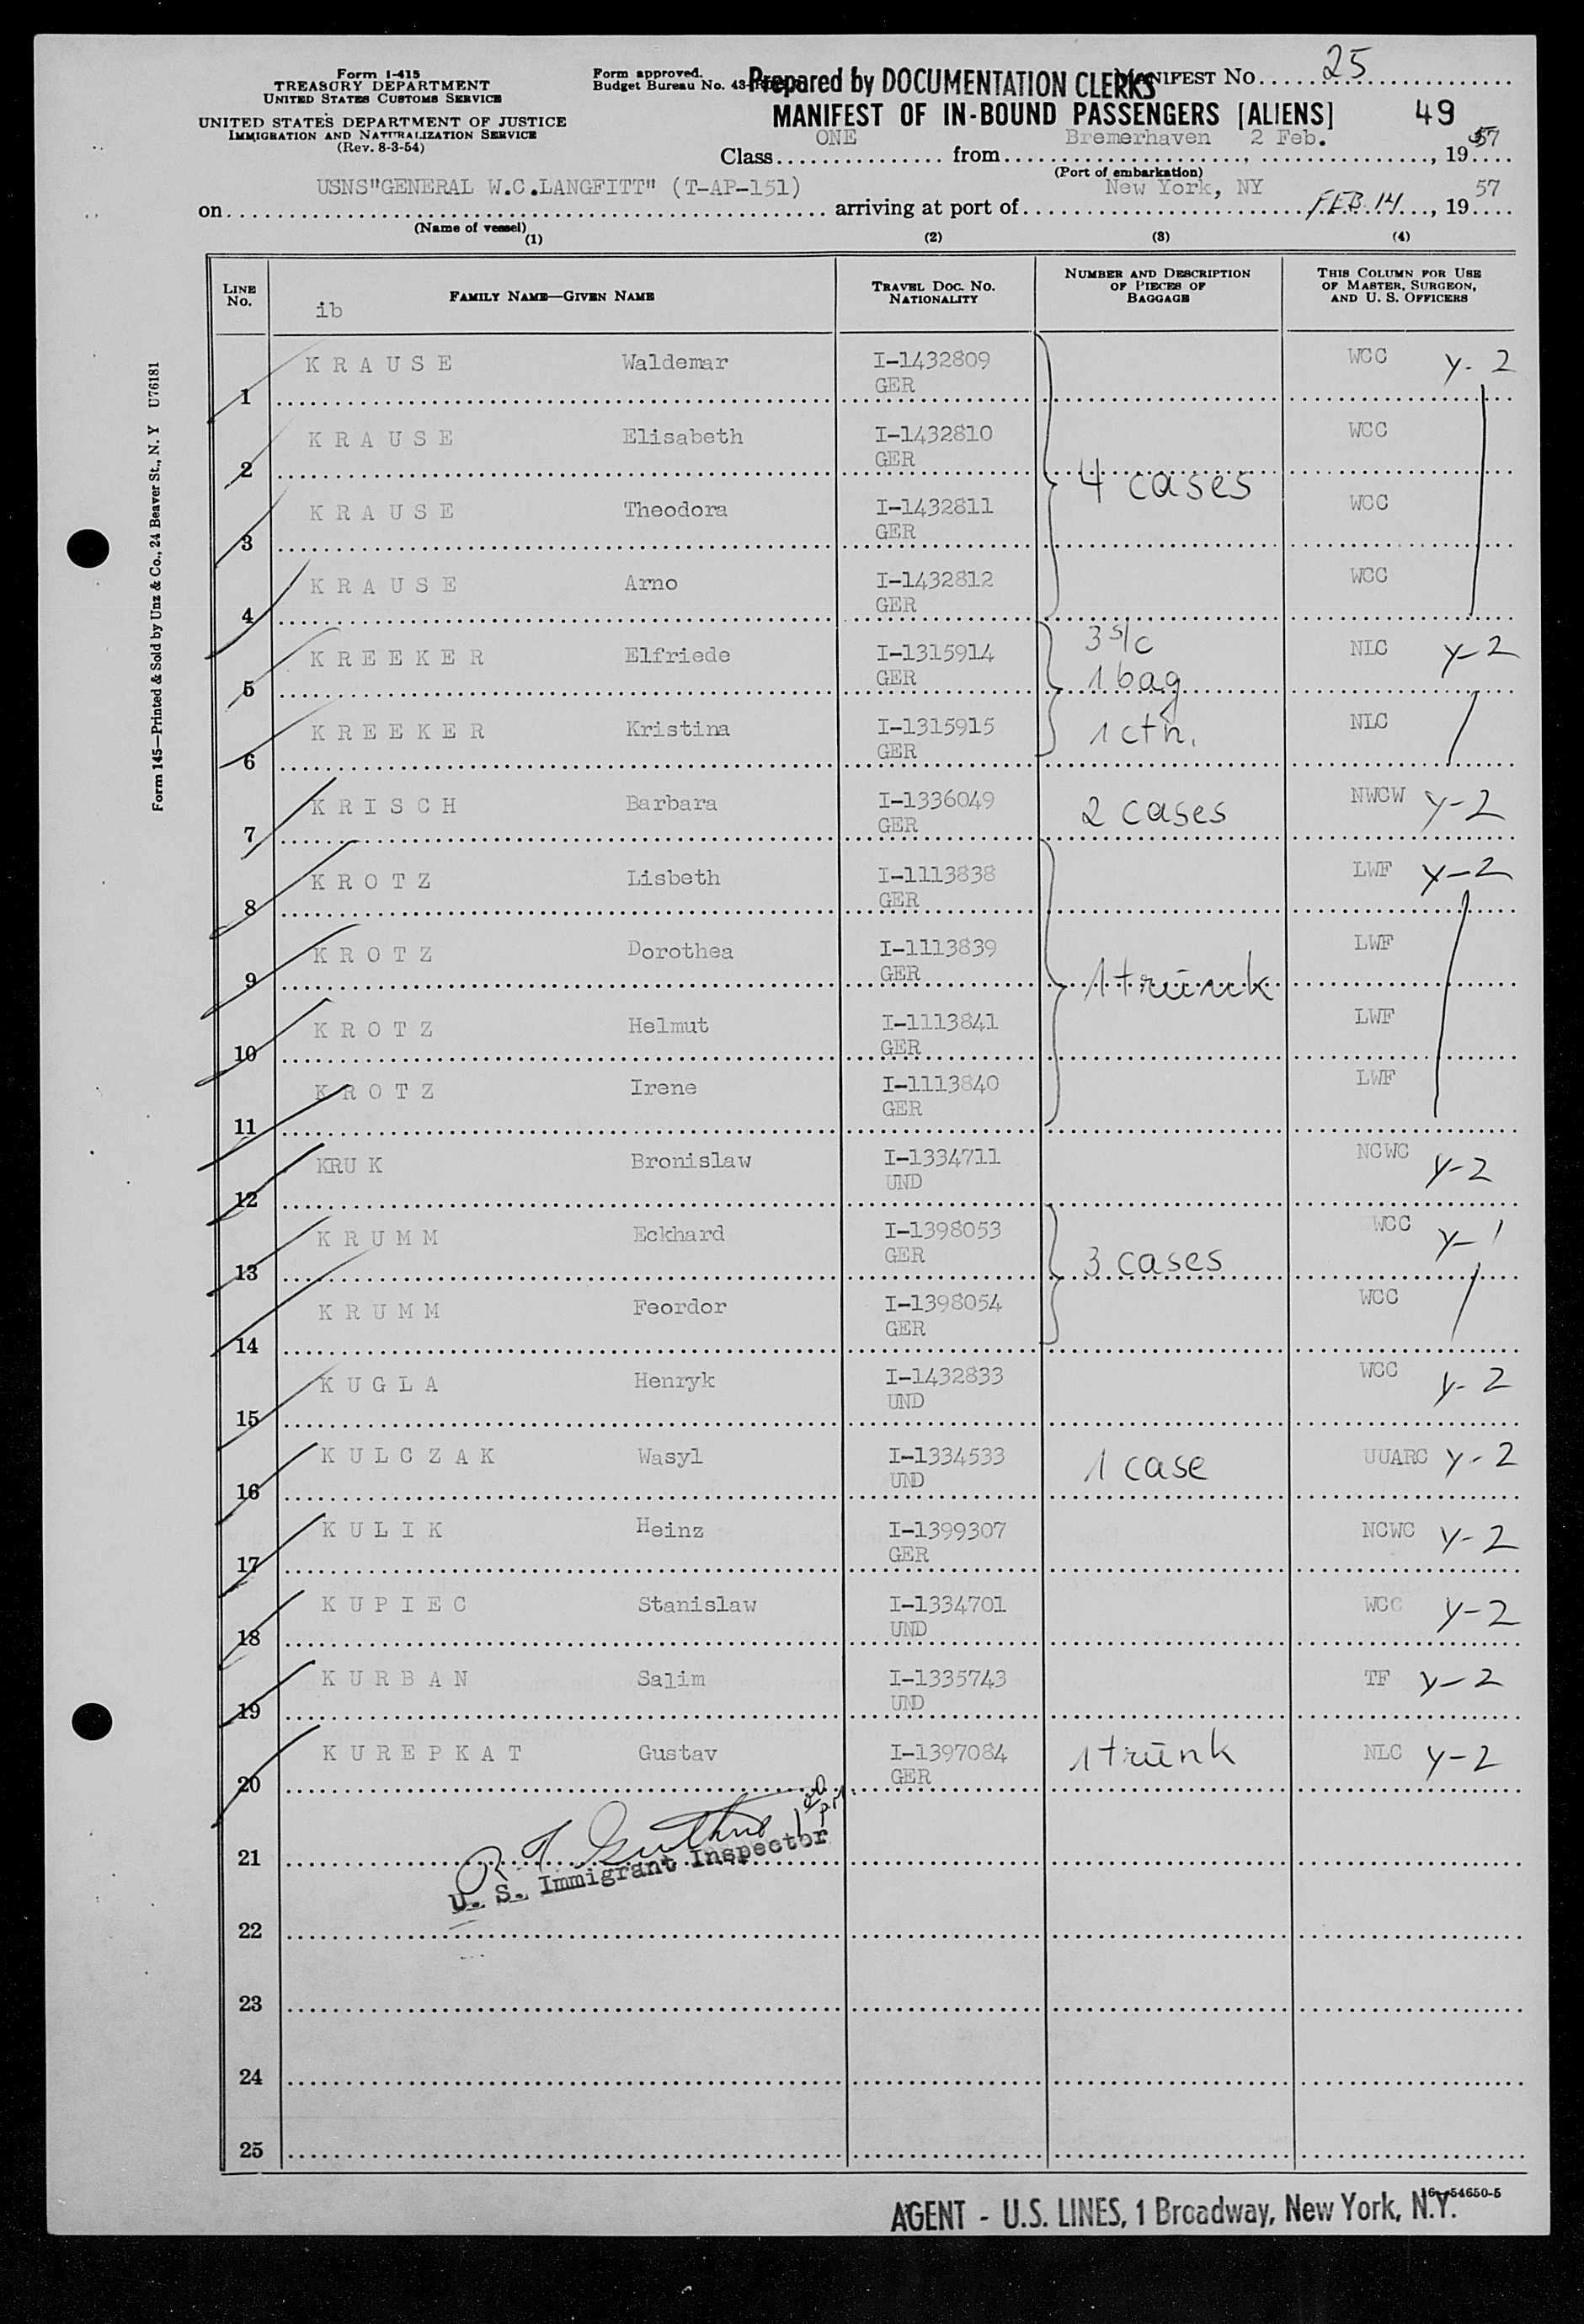 Form I-415
TREASURY DEPARTMENT
UNITED STATES CUSTOMS SERVICE
UNITED STATES DEPARTMENT OF JUSTICE
IMMIGRATION AND NATURALIZATION SERVICE
(Rev. 8-3-54)
Form approved.
Budget Bureau No. 43-
Prepared by DOCUMENTATION CLERKS
MANIFEST NO. 25
MANIFEST OF IN-BOUND PASSENGERS [ALIENS] 49
Class ONE from Bremerhaven 2 Feb., 1957
(Port of embarkation)
on USNS"GENERAL W.C.LANGFITT" (T-AP-151) arriving at port of New York, NY FEB. 14, 1957
(Name of vessel)
(1) (2) (3) (4)
LINE NO. ib FAMILY NAME—GIVEN NAME TRAVEL DOC. NO. NATIONALITY NUMBER AND DESCRIPTION OF PIECES OF BAGGAGE THIS COLUMN FOR USE OF MASTER, SURGEON, AND U. S. OFFICERS
1 KRAUSE Waldemar I-1432809 GER WCC Y-2
2 KRAUSE Elisabeth I-1432810 GER 4 cases WCC
3 KRAUSE Theodora I-1432811 GER WCC
4 KRAUSE Arno I-1432812 GER WCC
5 KREEKER Elfriede I-1315914 GER 3 s/c 1 bag NLC Y-2
6 KREEKER Kristina I-1315915 GER 1 ctn. NLC
7 KRISCH Barbara I-1336049 GER 2 cases NWCW Y-2
8 KROTZ Lisbeth I-1113838 GER LWF Y-2
9 KROTZ Dorothea I-1113839 GER 1 trunk LWF
10 KROTZ Helmut I-1113841 GER LWF
11 KROTZ Irene I-1113840 GER LWF
12 KRUK Bronislaw I-1334711 UND NCWC Y-2
13 KRUMM Eckhard I-1398053 GER 3 cases WCC Y-1
14 KRUMM Feordor I-1398054 GER WCC
15 KUGLA Henryk I-1432833 UND WCC Y-2
16 KULCZAK Wasyl I-1334533 UND 1 case UUARC Y-2
17 KULIK Heinz I-1399307 GER NCWC Y-2
18 KUPIEC Stanislaw I-1334701 UND WCC Y-2
19 KURBAN Salim I-1335743 UND TF Y-2
20 KUREPKAT Gustav I-1397084 GER 1 trunk NLC Y-2
21
U. S. Immigrant Inspector
22
23
24
25
16—54650-5
AGENT - U.S. LINES, 1 Broadway, New York, N.Y.
Form 145—Printed & Sold by Unz & Co., 24 Beaver St., N. Y U76181